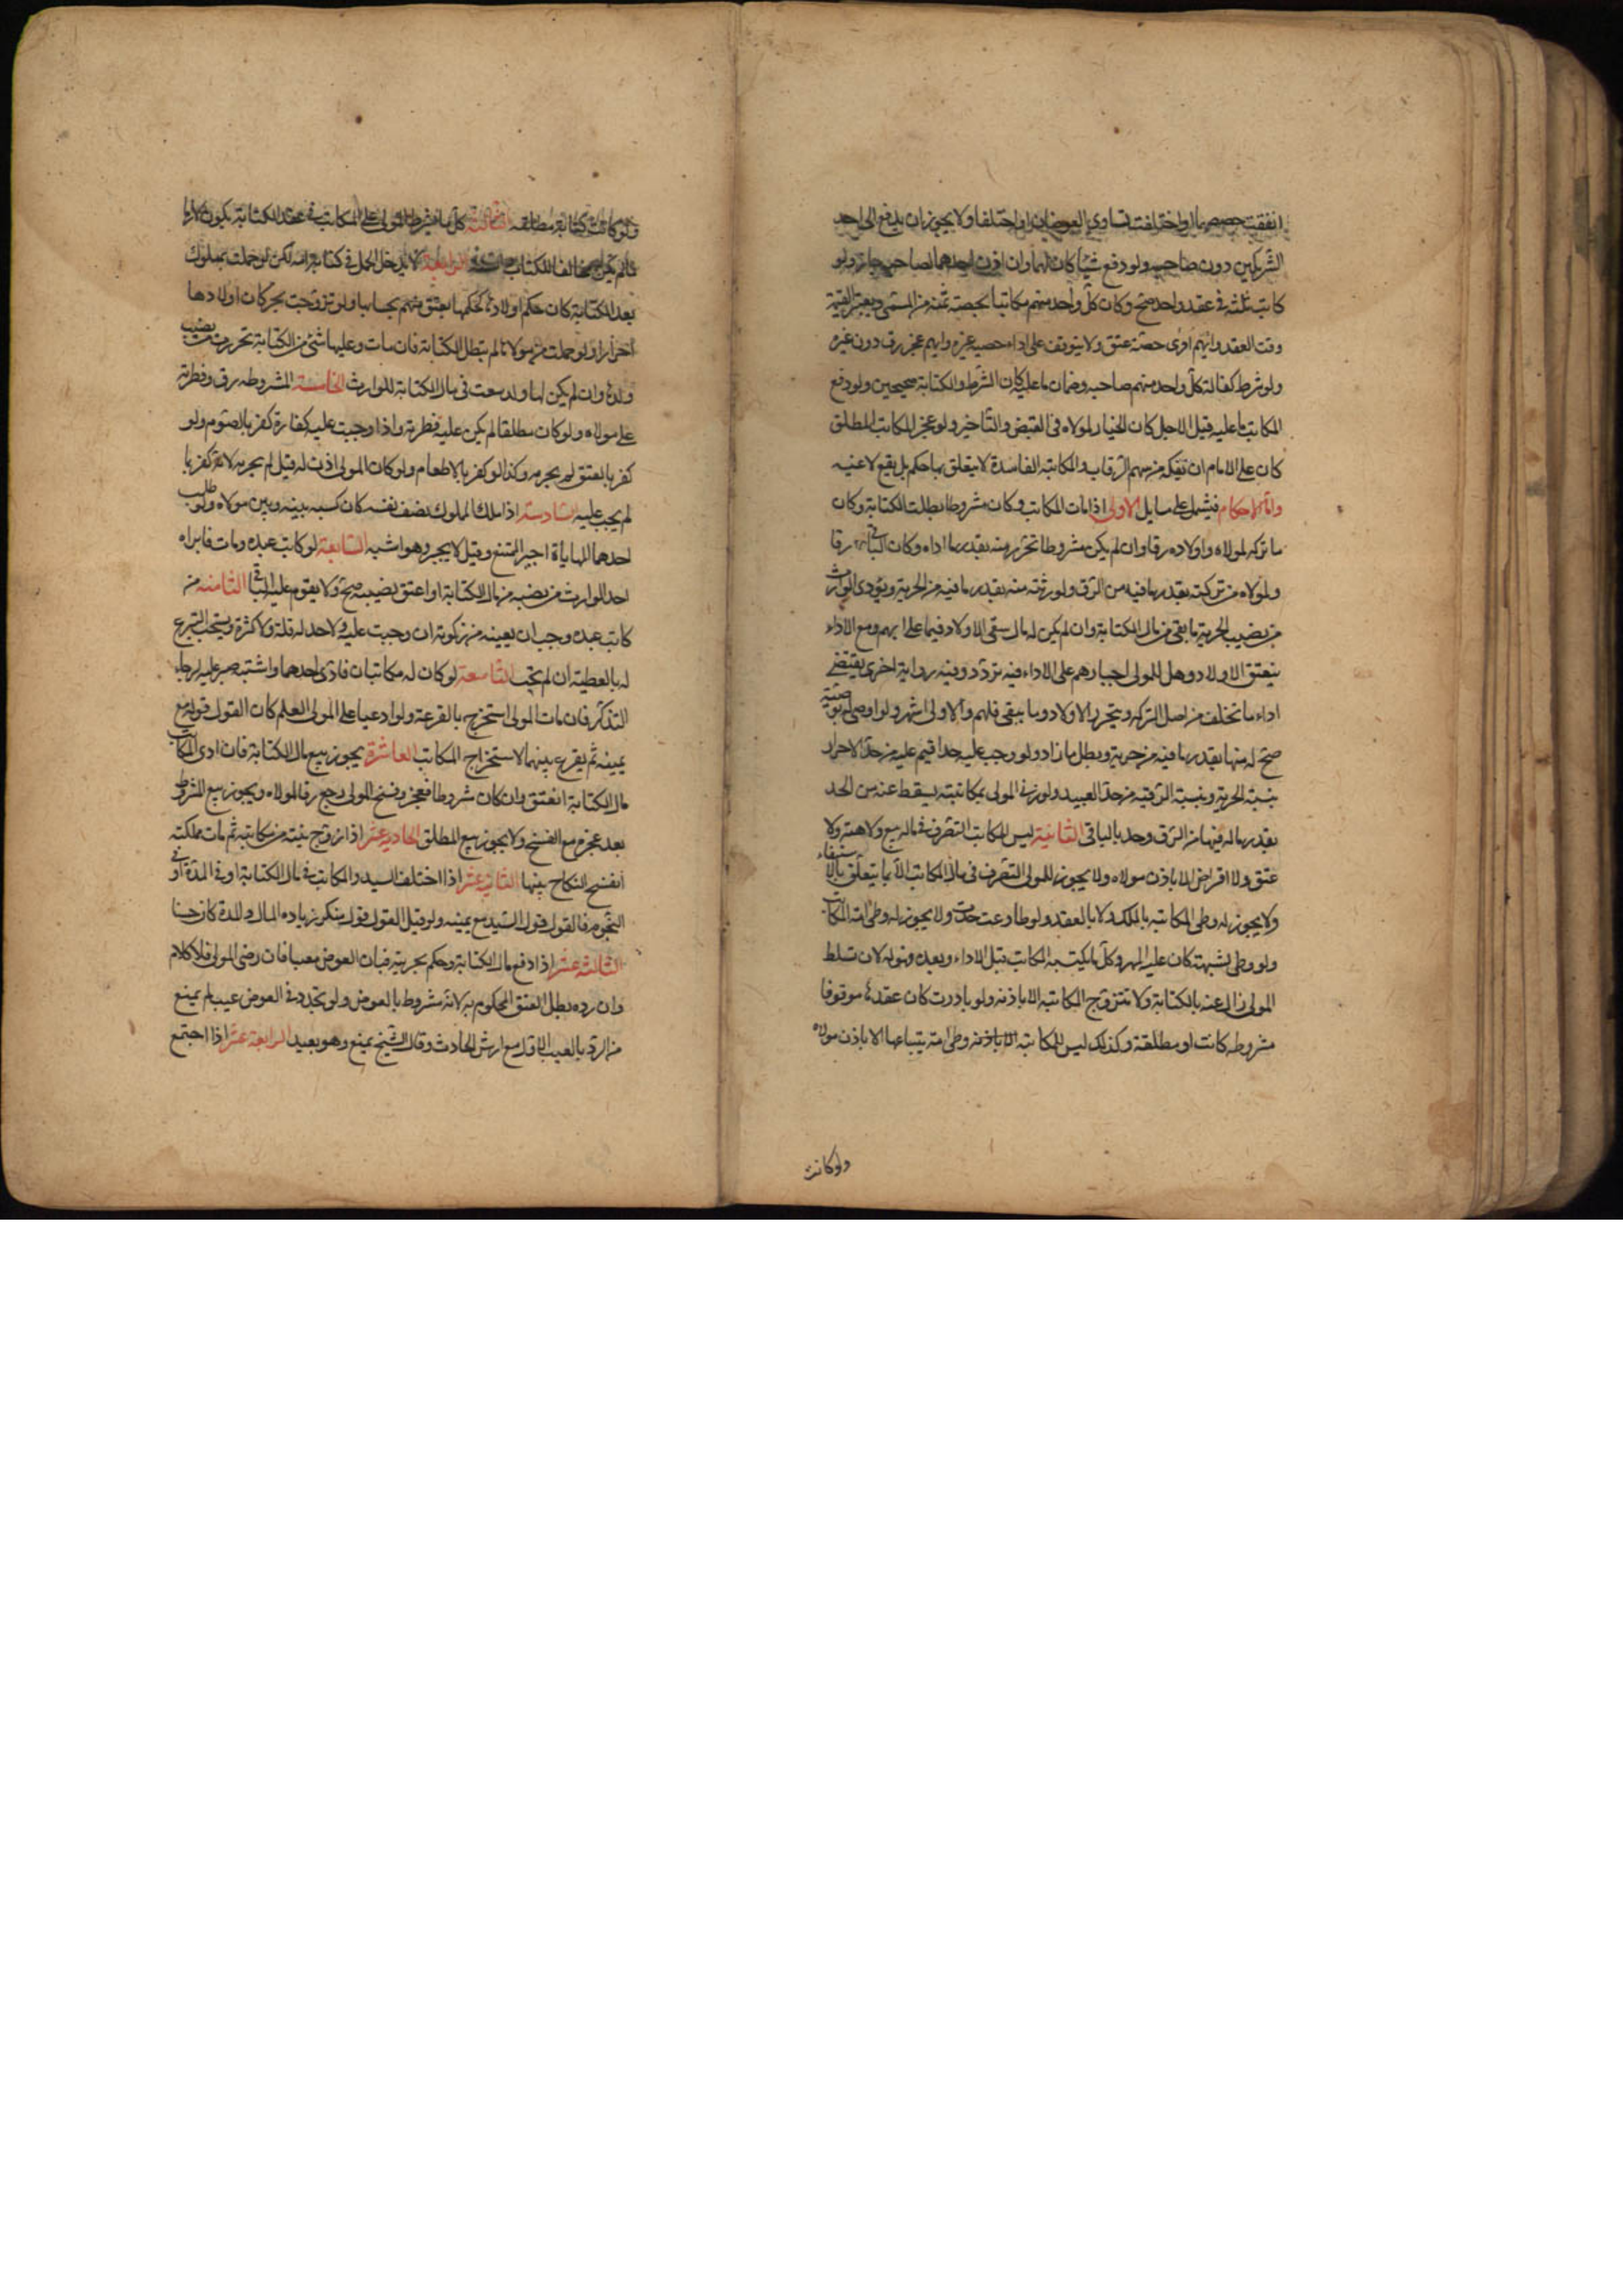 اتفقت حصصهما او اختلفت تساوى العوضان او اختلفا ولا يجوز ان يدفع الى احد
الشريكين دون صاحبه ولو دفع شيئا كان لهما وان اذن احدهما لصاحبه جاز ولو
كاتب ثلثة فى عقد واحد صح وكان كل واحد منهم مكاتبا بحصة ثمنه من المسمى ويعتبر القيمة
وقت العقد وايهم ادى حصته عتق ولا يتوقف على اداء حصة غيره وايهم عجز رق دون غيره
ولو شرط كفالة كل واحد منهم صاحبه وضمان ما عليه كان الشرط والكتابة صحيحين ولو دفع
المكاتب ما عليه قبل الاجل كان الخيار لمولاه فى القبض والتأخير ولو عجز المكاتب المطلق
كان على الامام ان يفكه من سهم الرقاب والمكاتبة الفاسدة لا يتعلق بها حكم بل يقع لاغية
واما الاحكام فيشتمل على مسايل الاولى اذا مات المكاتب وكان مشروطا بطلت الكتابة وكان
ما تركه لمولاه واولاده رقا وان لم يكن مشروطا تحرر منه بقدر ما اداه وكان الباقى رقا
ولمولاه من تركته بقدر ما فيه من الرق ولورثته منه بقدر ما فيه من الحرية ويؤدى الوارث
من نصيب الحرية ما بقى من مال الكتابة وان لم يكن له مال سعى الاولاد فيما على ابيهم ومع الاداء
ينعتق الاولاد وهل للمولى اجبارهم على الاداء فيه تردد وفيه رواية اخرى يقتضى
اداء ما تخلف من اصل التركه ويتحرر الاولاد وما يبقى فلهم والاولى اشهر ولو اوصى له بوصية
صح له منها بقدر ما فيه من حرية وبطل ما زاد ولو وجب عليه حد اقيم عليه من حد الاحرار
بنسبة الحرية وبنسبة الرقية من حد العبيد ولو زنى المولى بمكاتبته يسقط عنه من الحد
بقدر ماله فيها من الرق وحد بالباقى الثانية ليس للمكاتب التصرف فى ماله ببيع ولا هبة ولا
عتق ولا اقراض الا باذن مولاه ولا يجوز للمولى التصرف فى مال المكاتب الا بما يتعلق بالاستيفاء
ولا يجوز له وطى المكاتبه بالملك ولا بالعقد ولو طاوعت حدت ولا يجوز له وطى امة المكاتب
ولو وطى بشبهة كان عليه المهر وكل ما يكتسبه المكاتب قبل الاداء وبعده فهو له لان تسلط
المولى زال عنه بالكتابة ولا تتزوج المكاتبه الا باذنه ولو بادرت كان عقدها موقوفا
مشروطه كانت او مطلقة وكذلك ليس للمكاتبه الا باذنه وطى امة يبتاعها الا باذن مولاه
ولو كانت
ولو كانت كتابته مطلقه الثالثة كل ما يشرطه المولى على المكاتب فى عقد الكتابة يكون لازما
ما لم يكن مخالفا للكتاب الرابعة لا يدخل الحمل فى كتابة امه لكن لو حملت بمملوك
بعد الكتابة كان حكم اولادها كحكمها ينعتق منهم بحسابها ولو تزوجت بحر كان اولادها
احرارا ولو حملت من مولاها لم يبطل الكتابة فان مات وعليها شئ من الكتابة تحررت من نصيب
ولدها وان لم يكن لها ولد سعت فى مال الكتابة للوارث الخامسة المشروطه رق وفطرته
على مولاه ولو كان مطلقا لم يكن عليه فطرته واذا وجبت عليه كفارة كفر بالصوم ولو
كفر بالعتق لم يجزه وكذا لو كفر بالاطعام ولو كان المولى اذن له قيل لم يجزه لانه كفر بما
لم يجب عليه السادسة اذا ملك المملوك نصف نفسه كان كسبه بينه وبين مولاه ولو طلب
احدهما المهاياة اجبر الممتنع وقيل لا يجبر وهو اشبه السابعة لو كاتب عبده ومات فابراه
احد الوارث من نصيبه من مال الكتابة او اعتق نصيبه صح ولا يقوم عليه الباقى الثامنه من
كاتب عبده وجب ان يعينه من زكوته ان وجبت عليه ولا حد له قلة ولا كثرة ويستحب التبرع
له بالعطية ان لم تجب التاسعة لو كان له مكاتبان فادى احدهما واشتبه صبر عليه لرجاء
التذكر فان مات المولى استخرج بالقرعة ولو ادعيا على المولى العلم كان القول قوله مع
يمينه ثم يقرع بينهما لاستخراج المكاتب العاشرة يجوز بيع مال الكتابة فان ادى المكاتب
مال الكتابة انعتق وان كان مشروطا فعجز وفسخ المولى رجع رقا لمولاه ويجوز بيع المشروط
بعد عجزه مع الفسخ ولا يجوز بيع المطلق الحادية عشر اذا زوج بنته من مكاتبه ثم مات فملكته
انفسخ النكاح بينهما الثانية عشر اذا اختلف السيد والمكاتب فى مال الكتابة او فى المدة او فى
النجوم فالقول قول السيد مع يمينه ولو قيل القول قول منكر زياده المال والمدة كان حسنا
الثالثة عشر اذا دفع مال الكتابة وحكم بحريته فبان العوض معيبا فان رضى المولى فلا كلام
وان رده بطل العتق المحكوم به لانه مشروط بالعوض ولو تجدد فى العوض عيب لم يمنع
من الرد بالعيب الاول مع ارش الحادث وقال الشيخ يمنع وهو بعيد الرابعة عشر اذا اجتمع